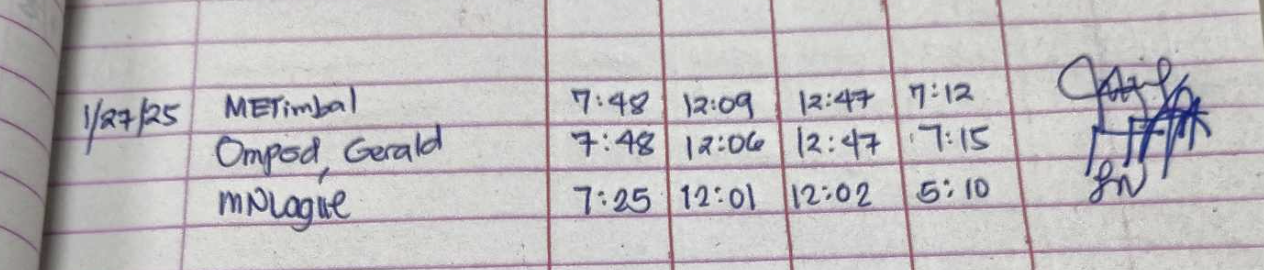 1/27/25 METimbal 7:48 12:09 12:47 7:12
Ompod, Gerald 7:48 12:06 12:47 7:15
MNLague 7:25 12:01 12:02 5:10